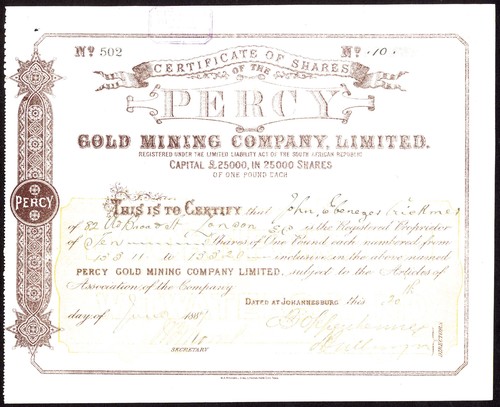 No 502
No 10
CERTIFICATE OF SHARES
OF THE
PERCY
GOLD MINING COMPANY, LIMITED.
REGISTERED UNDER THE LIMITED LIABILITY ACT OF THE SOUTH AFRICAN REPUBLIC
CAPITAL £25000, IN 25000 SHARES
OF ONE POUND EACH
PERCY
THIS IS TO CERTIFY that John Ebenezer
of 82 London E.C. is the Registered Proprietor
of Ten Shares of One Pound each numbered from
13311 to 13320 inclusive in the above named
PERCY GOLD MINING COMPANY LIMITED, subject to the Articles of
Association of the Company
DATED at JOHANNESBURG this 20th
day of June 188
SECRETARY
DIRECTORS